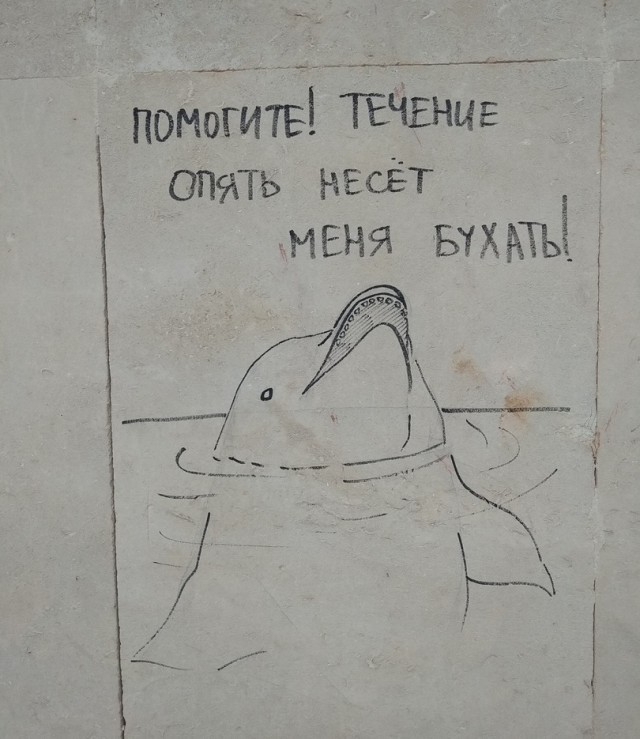 ПОМОГИТЕ! ТЕЧЕНИЕ
ОПЯТЬ НЕСЁТ
МЕНЯ БУХАТЬ!